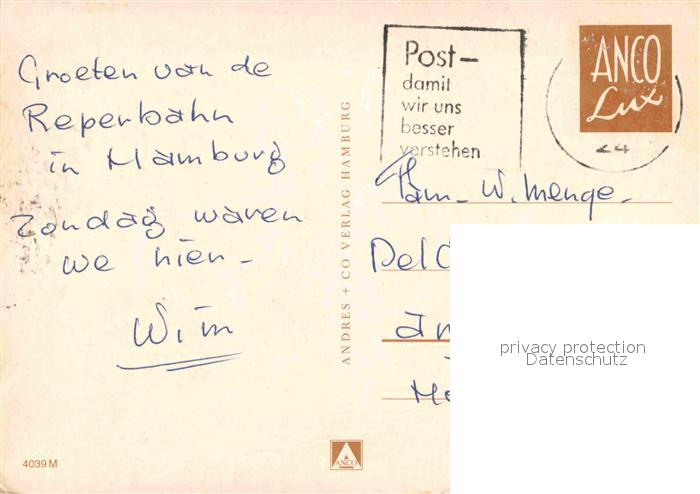 Groeten van de
Reperbahn
in Hamburg
Zondag waren
we hier -
Wim
4039 M
ANDRES + CO VERLAG HAMBURG
ANCO
Post-
damit
wir uns
besser
verstehen
ANCO
Lux
24
Fam. W. Menge.
privacy protection
Datenschutz